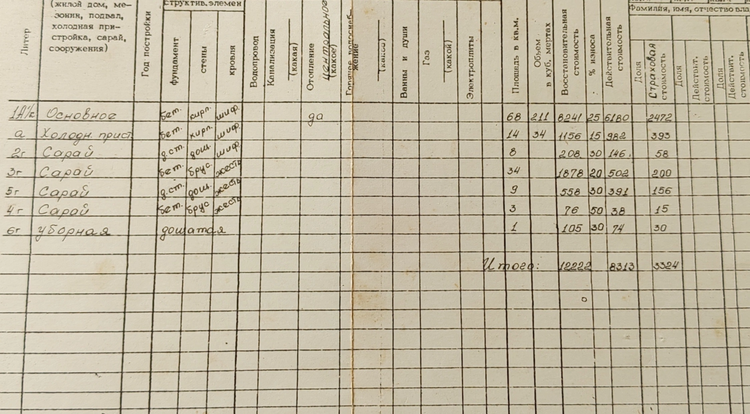 Литер
(жилой дом, мезонин, подвал, холодная пристройка, сарай, сооружения)
Год постройки
фундамент
стены
кровли
Водопровод
Канализация
(какая)
Отопление центральное
(какое)
Ванны и души
Газ
(какой)
Электроплиты
Площадь в кв.м.
Объем в куб. метрах
Восстановительная стоимость
% износа
Действительная стоимость
Фамилия, имя, отчество
Доля
Страховая стоимость
Доля
Действит. стоимость
Доля
Действит. стоимость
Основное бет. кирп. шиф. да 68 211 8241 25 6180 2472
а Холодн. прист. бет. кирп. шиф. 14 34 1156 15 982 393
2г Сарай д.ст. дощ. шиф. 8 208 30 146 58
3г Сарай бет. брус жесть 34 1878 20 502 200
5г Сарай д.ст. дощ. жесть 9 558 30 391 156
4г Сарай бет. брус жесть 3 76 50 38 15
6г уборная дощатая 1 105 30 74 30
Итого: 12222 8313 3324